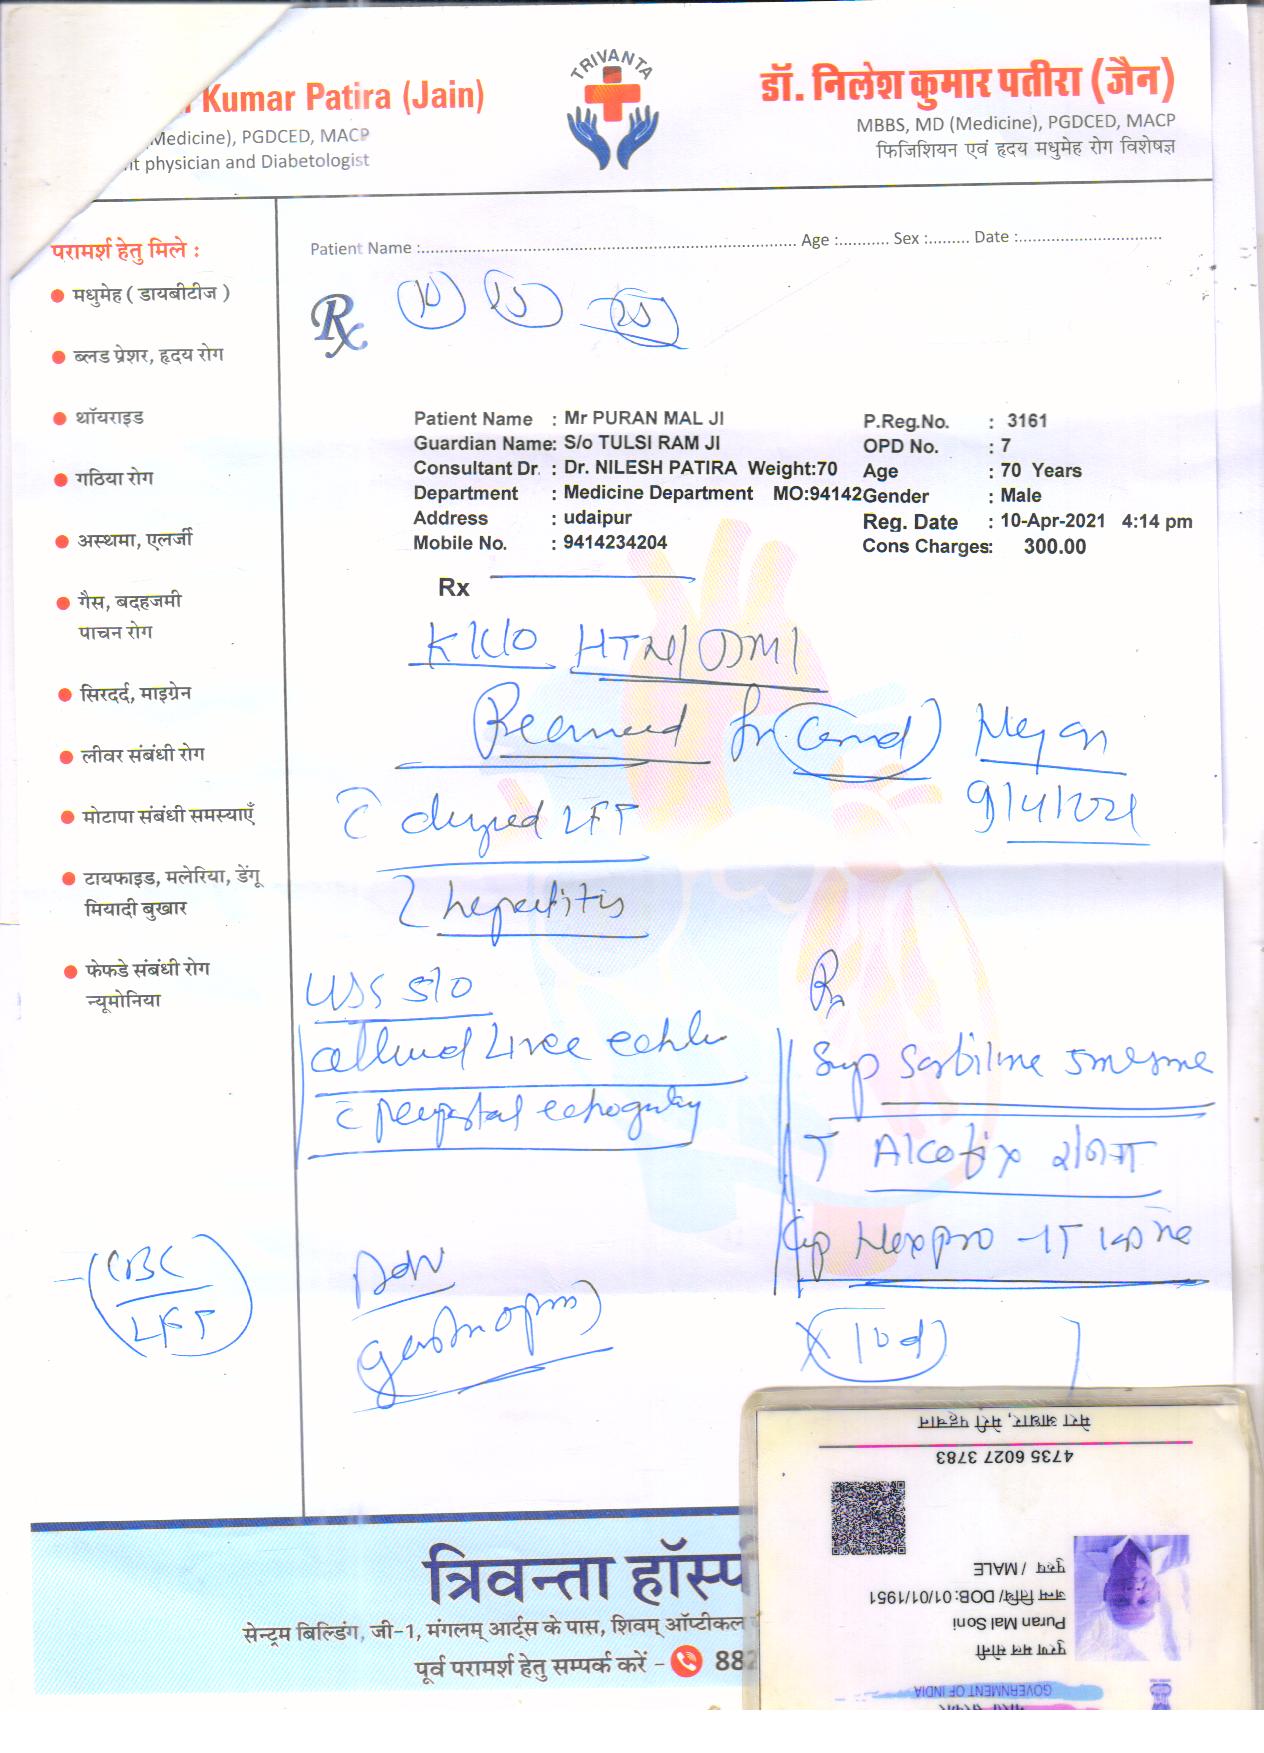 Kumar Patira (Jain)
Medicine), PGDCED, MACP
nt physician and Diabetologist
TRIVANTA
डॉ. निलेश कुमार पतीरा (जैन)
MBBS, MD (Medicine), PGDCED, MACP
फिजिशियन एवं हृदय मधुमेह रोग विशेषज्ञ
परामर्श हेतु मिले :
मधुमेह ( डायबीटीज )
ब्लड प्रेशर, हृदय रोग
थॉयराइड
गठिया रोग
अस्थमा, एलर्जी
गैस, बदहजमी
पाचन रोग
सिरदर्द, माइग्रेन
लीवर संबंधी रोग
मोटापा संबंधी समस्याएँ
टायफाइड, मलेरिया, डेंगू
मियादी बुखार
फेफडे संबंधी रोग
न्यूमोनिया
Patient Name :.......... Age :.......... Sex :......... Date :..........
Rx
Patient Name : Mr PURAN MAL JI P.Reg.No. : 3161
Guardian Name: S/o TULSI RAM JI OPD No. : 7
Consultant Dr. : Dr. NILESH PATIRA Weight:70 Age : 70 Years
Department : Medicine Department MO:94142 Gender : Male
Address : udaipur Reg. Date : 10-Apr-2021 4:14 pm
Mobile No. : 9414234204 Cons Charges: 300.00
Rx
K/C/O HTN/DM
for
9/4/2021
LFT
hepatitis
USG S/O
Liver
Rx
Syp Sorbiline
T Alcofix
Cap Nexpro
CBC
LFT
Adv
मेरा आधार, मेरी पहचान
4735 6027 3783
पुरुष / MALE
जन्म तिथि/ DOB:01/01/1951
Puran Mal Soni
पुरण मल सोनी
GOVERNMENT OF INDIA
त्रिवन्ता हॉस्प
सेन्ट्रम बिल्डिंग, जी-1, मंगलम् आर्ट्स के पास, शिवम् ऑप्टीकल
पूर्व परामर्श हेतु सम्पर्क करें - 882